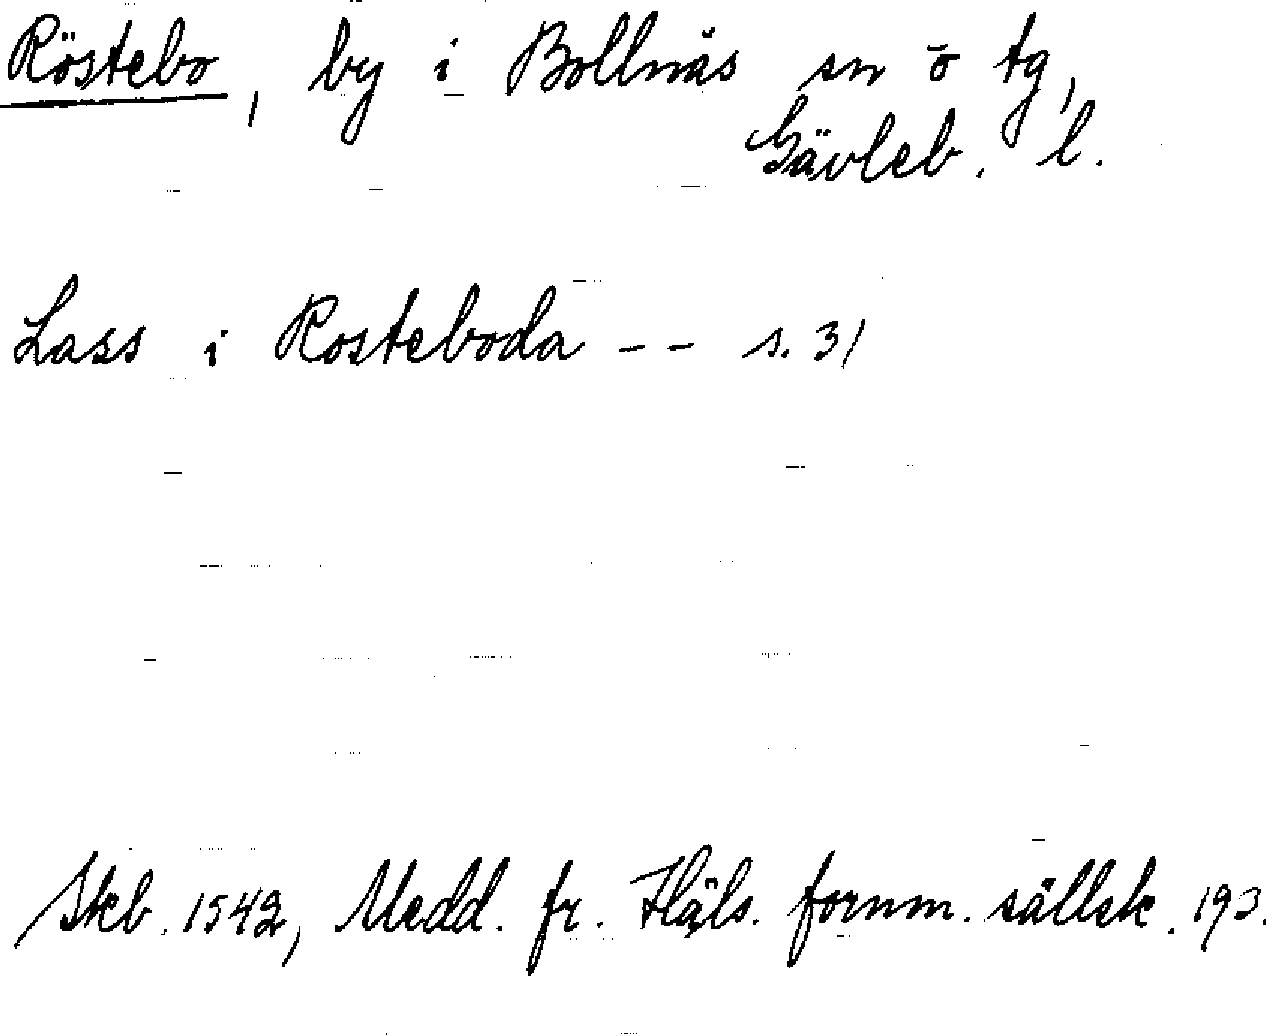 Röstebo, by i Bollnäs sn o tg,
Gävleb. l.
Lass i Rosteboda -- s. 31
Skb. 1542, Medd. fr. Häls. fornm. sällsk. 193.